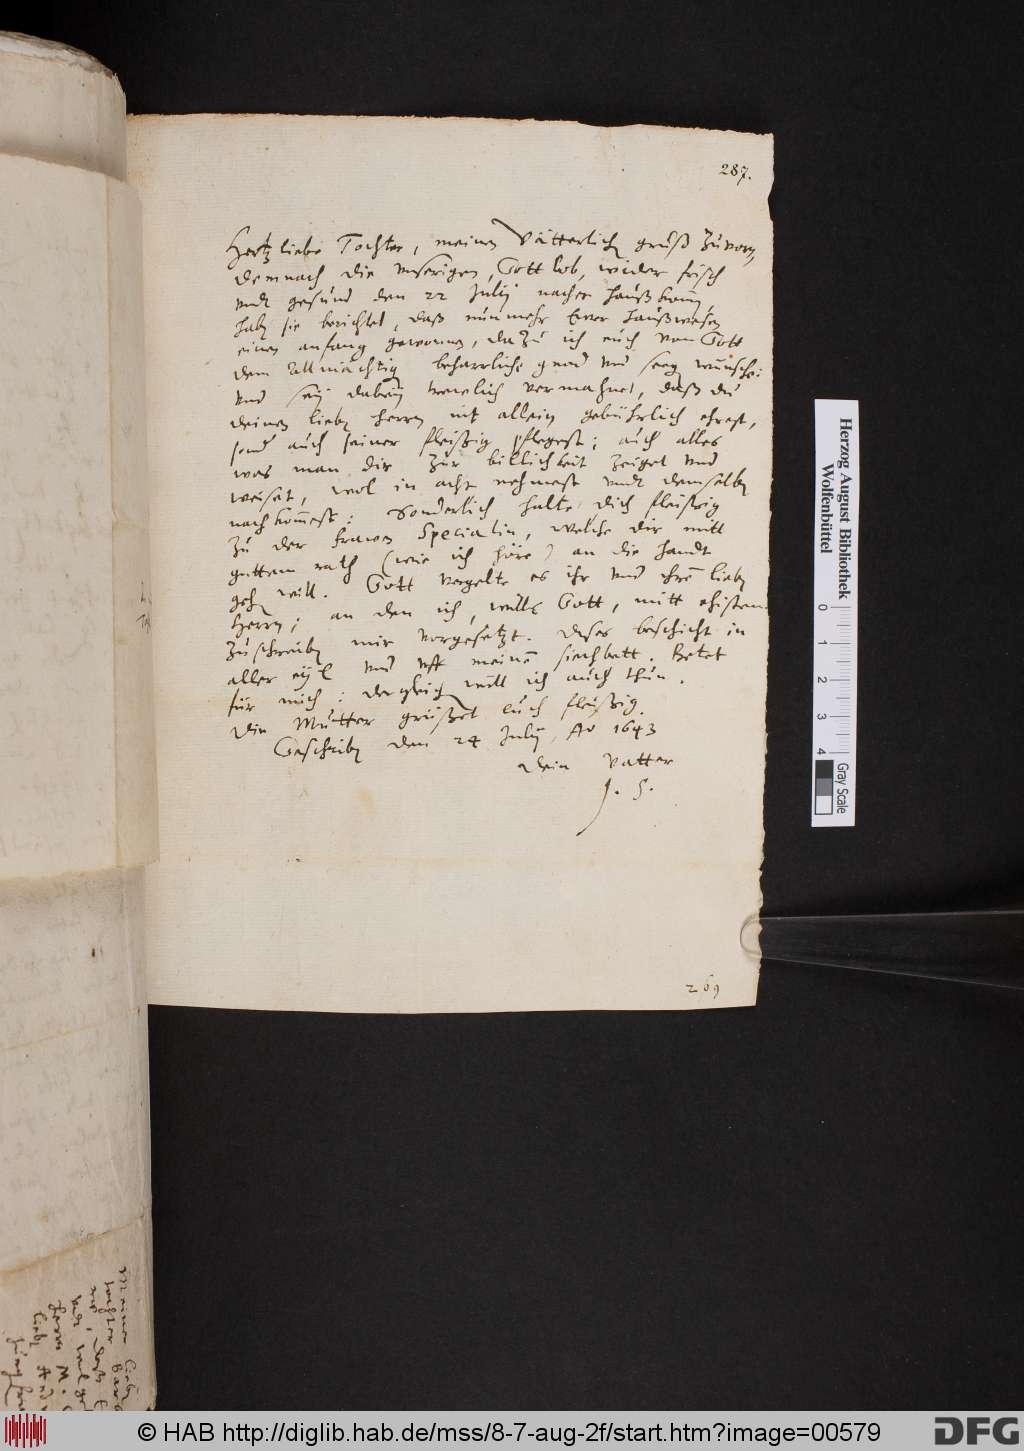 287.
Hertzliebe Tochter, meinen Vätterlichen gruß zuvorn,
demnach die unserigen, Gott lob, wider frisch
undt gesund den 22 Julij nacher hauß kommen,
haben sie berichtet, daß nunmehr Ewer haußwesen
einen anfang gewonnen, dazu ich euch von Gott
dem Allmächtigen beharrliche gnad und seegen wünsche:
und sey dabey trewlich vermahnet, daß du
deinen lieben herren nit allein gebührlich ehrest,
sond auch seiner fleißig pflegest; auch alles
was man dir zur billichkeit zeiget und
weiset, wol in acht nehmest undt demselben
nachkommest: Sonderlich halte dich fleißig
zu der frawen Specialin, welche dir mitt
guttem rath (wie ich höre) an die handt
gehen will. Gott vergelte es ihr und ihrem lieben
Herren; an den ich, wills Gott, mitt ehistem
zuschreiben mir vorgesetzt. dises beschicht in
aller eyl und uff meinem siechbett. Betet
für mich: dergleichen will ich auch thun.
die Mutter grüßet euch fleißig.
Geschriben den 24 Julij, Ao 1643
dein Vatter
J. S.
269
Herzog August Bibliothek
Wolfenbüttel
0 1 2 3 4
Gray Scale
Meiner lieben
tochter
Herrn M.
© HAB http://diglib.hab.de/mss/8-7-aug-2f/start.htm?image=00579
DFG